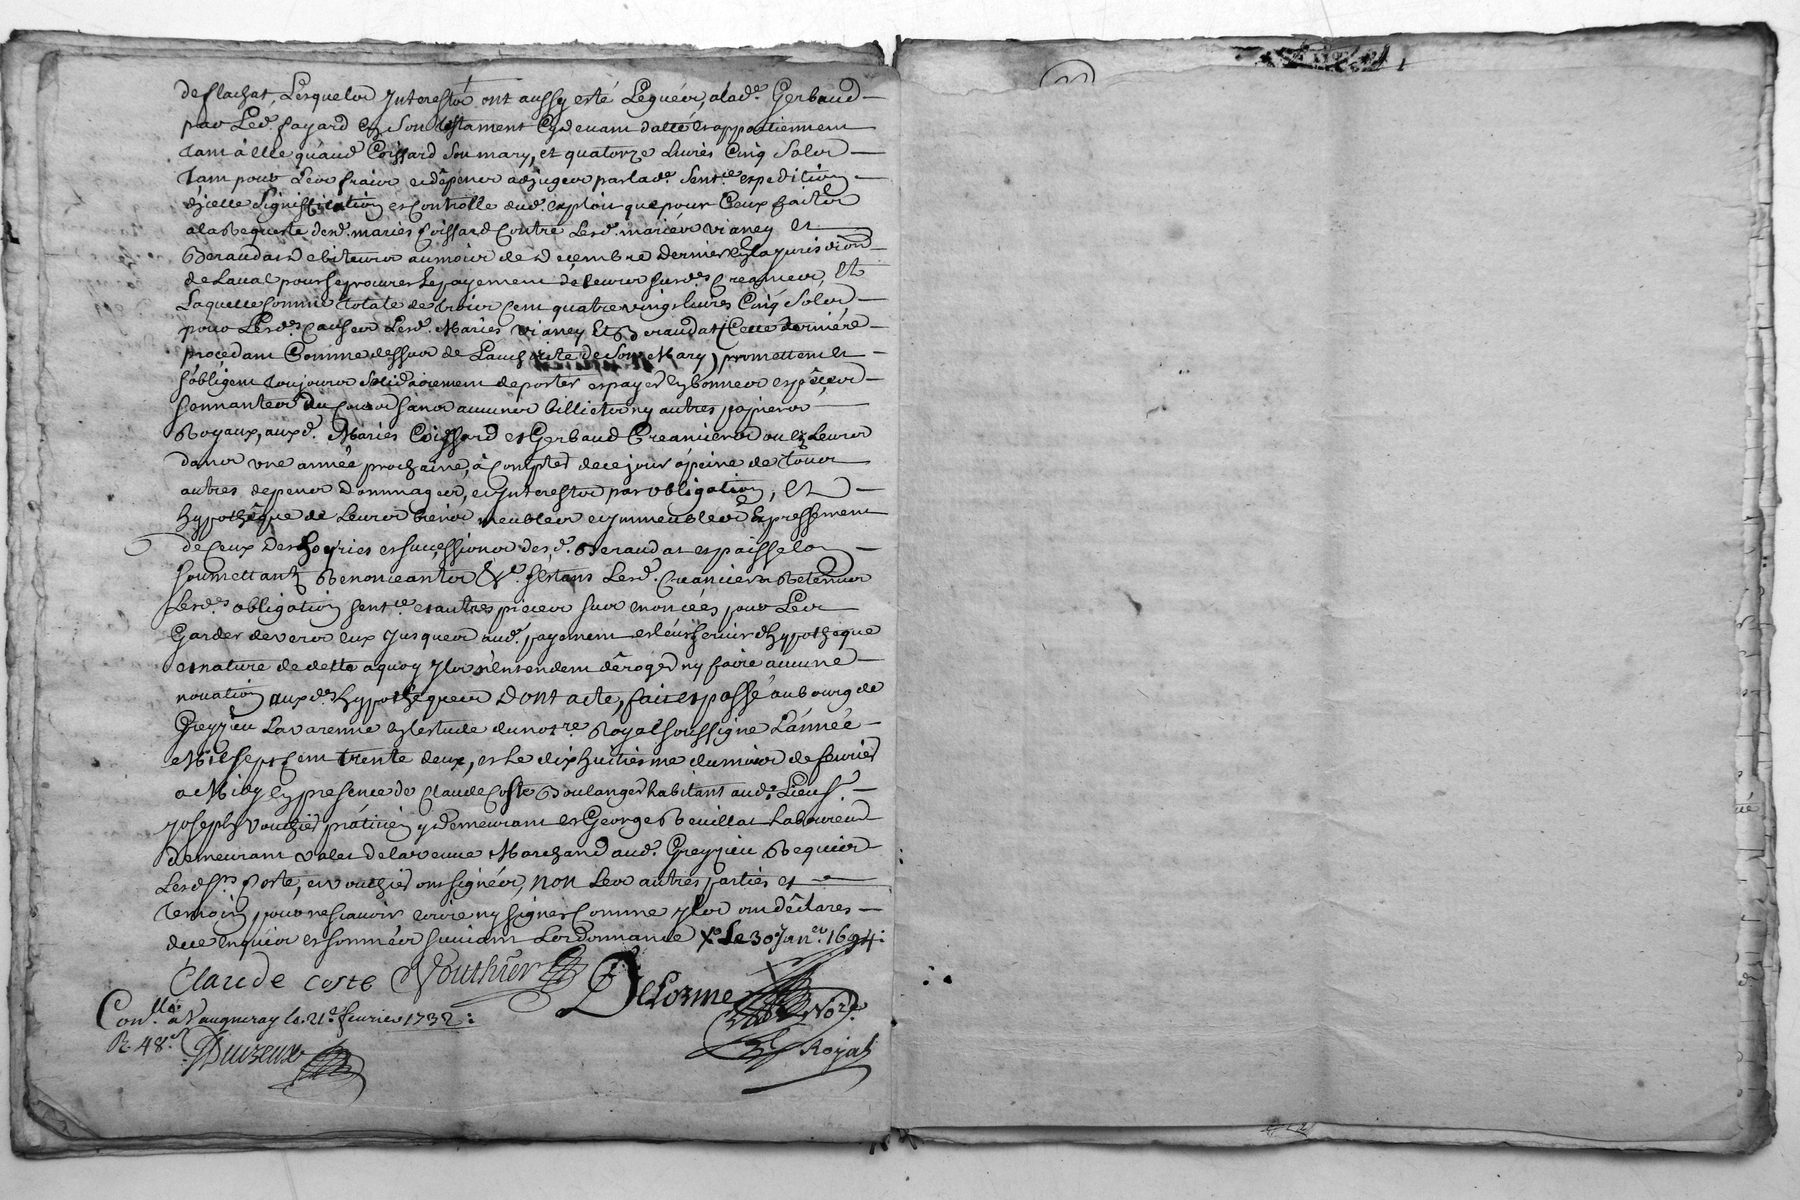 de flachat, Lesquelz Interestz ont aussy esté Leguéz, a lad.e Gerbaud
par Led. fayard en Son testament Cydevant datté et appartiennent
tant à Elle qu'aud. Coissard Son mary, et quatorze Livres Cinq Solz
tant pour Les fraix et dêpens adjugez par lad.e Sent.ce expedition
d'jcelle Signiffication et Controlle dud. exploit que pour Ceux faitz
a la Requeste desd. mariés Coissard Contre Lesd. mariéz vianey et
Beraudat debiteurs au mois de decembre dernier en la jurisdi.on
de Laval pour Se procurer Le payement de Leurs susd.es Creances, Et
Laquelle Somme totale de trois Cent quatre vingt Livres Cinq Solz
pour Lesd.es Causes Lesd. Mariés vianey Et Beraudat (Cette dernière
procedant Comme dessus de L'authorité de Son Mary) promettent et
s'obligent toujours Solidairement de porter et payer en bonnes espêces
sonnantes du Cours sans aucuns billietz ny autres papiers
Royaux, auxd. Mariés Coissard et Gerbaud Creanciers ou es Leurs
dans une année prochaine, à Compter de ce jour à peine de tous
autres depens dommages, et Interestz par obligation, Et
hypothêque de Leurs biens meubles et jmmeubles Expressement
de Ceux des hoyries et successions desd. Beraudat et paisselon
soumettant Renonceantz &.e sestans Lesd. Creanciers Retenus
Lesd.es obligation sent.ce et autres pieces sus enoncéés pour Les
Garder devers eux jusques aud. payement et leur servir d'hypotheque
et nature de dette a quoy ylz n'entendent dêroger ny faire aucune
novation auxd.es hypotheques Dont acte, fait et passé au bourg de
Greyzieu Lavarenne en L'estude du not.re Royal soussigné L'année
Mil sept Cent trente deux, et Le dix huitiesme du mois de fevrier
a Midy en presence de Claude Coste Boulanger habitant aud. Lieu
joseph vouthier praticien y demeurant et George Reuillat Laboureur
demeurant valet de la veuve Marchand aud. Greyzieu Requis
Lesd. Srs Coste, et vouthier ont signéz, non Les autres parties et
temoin pour ne scavoir ecrire ny signer Comme ylz ont dêclarés
de ce enquis et sommés suivant L'ordonnance X.e Le 30 Jan.er 1694:
Claude coste Vouthier
Delorme Not.re
Royal
Con.llé à Vaugneray le 21.e fevrier 1732:
R. 48.s
Duizeux